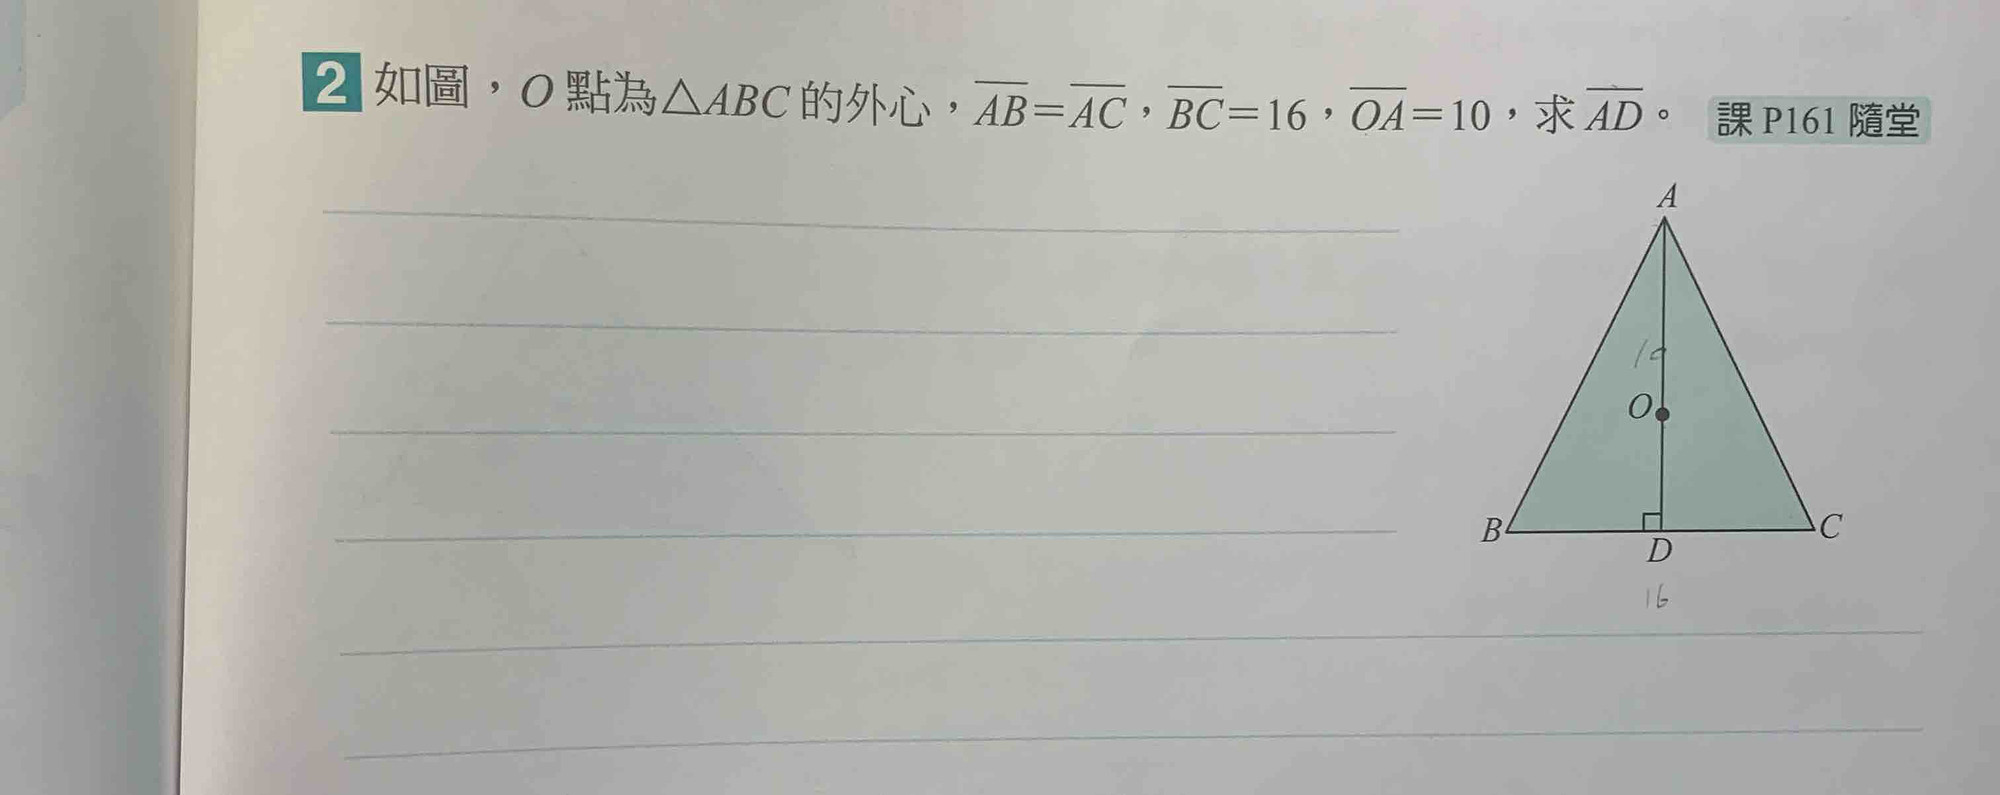 2 如圖，O 點為△ABC 的外心，AB=AC，BC=16，OA=10，求 AD。 課 P161 隨堂
A
10
O
B
C
D
16